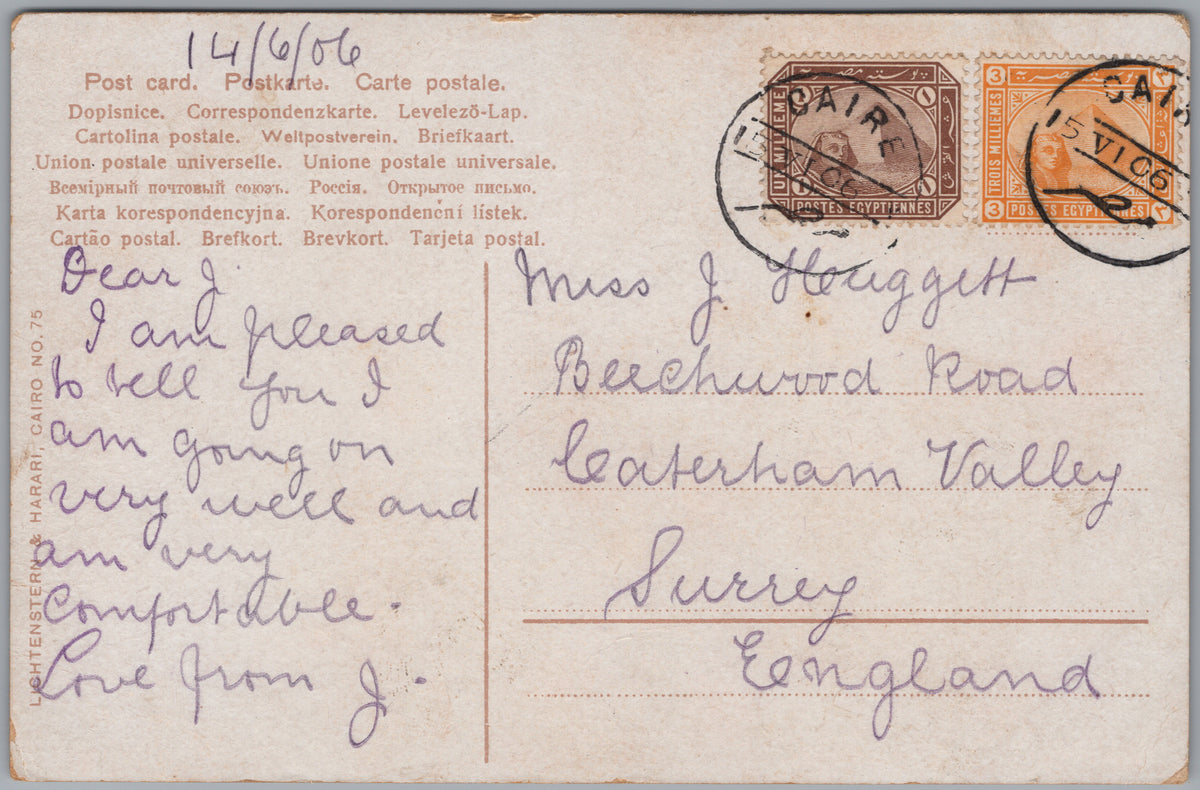 14/6/06
Post card. Postkarte. Carte postale.
Dopisnice. Correspondenzkarte. Levelezö-Lap.
Cartolina postale. Weltpostverein. Briefkaart.
Union postale universelle. Unione postale universale.
Всемірный почтовый союзъ. Россія. Открытое письмо.
Karta korespondencyjna. Korespondenční lístek.
Cartão postal. Brefkort. Brevkort. Tarjeta postal.
Dear J.
I am pleased
to tell you I
am going on
very well and
am very
comfortable.
Love from J.
LICHTENSTERN & HARARI, CAIRO NO. 75
بوستة مصرية
UN MILLIEME
١
1
POSTES EGYPTIENNES
CAIRE
15 VI 06
بوستة مصرية
3
TROIS MILLIEMES
٣
3
POSTES EGYPTIENNES
٣
CAIR
15 VI 06
Miss J. Huggett
Beechwood Road
Caterham Valley
Surrey
England